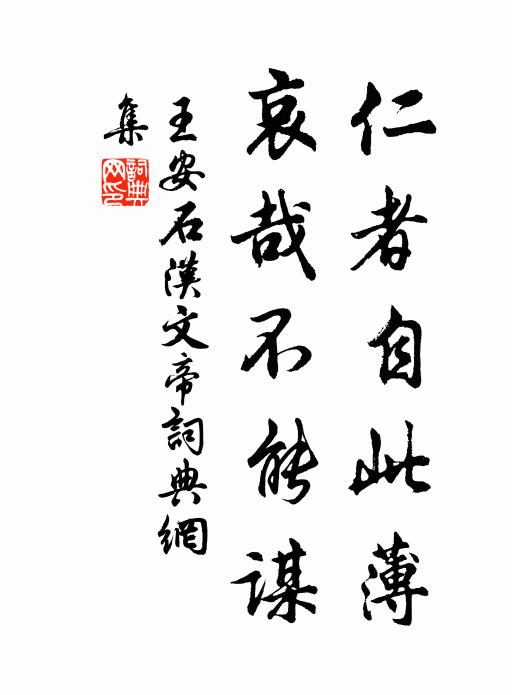 仁者自此薄
哀哉不能謀
王安石漢文帝詞典網
集
詞典
网印